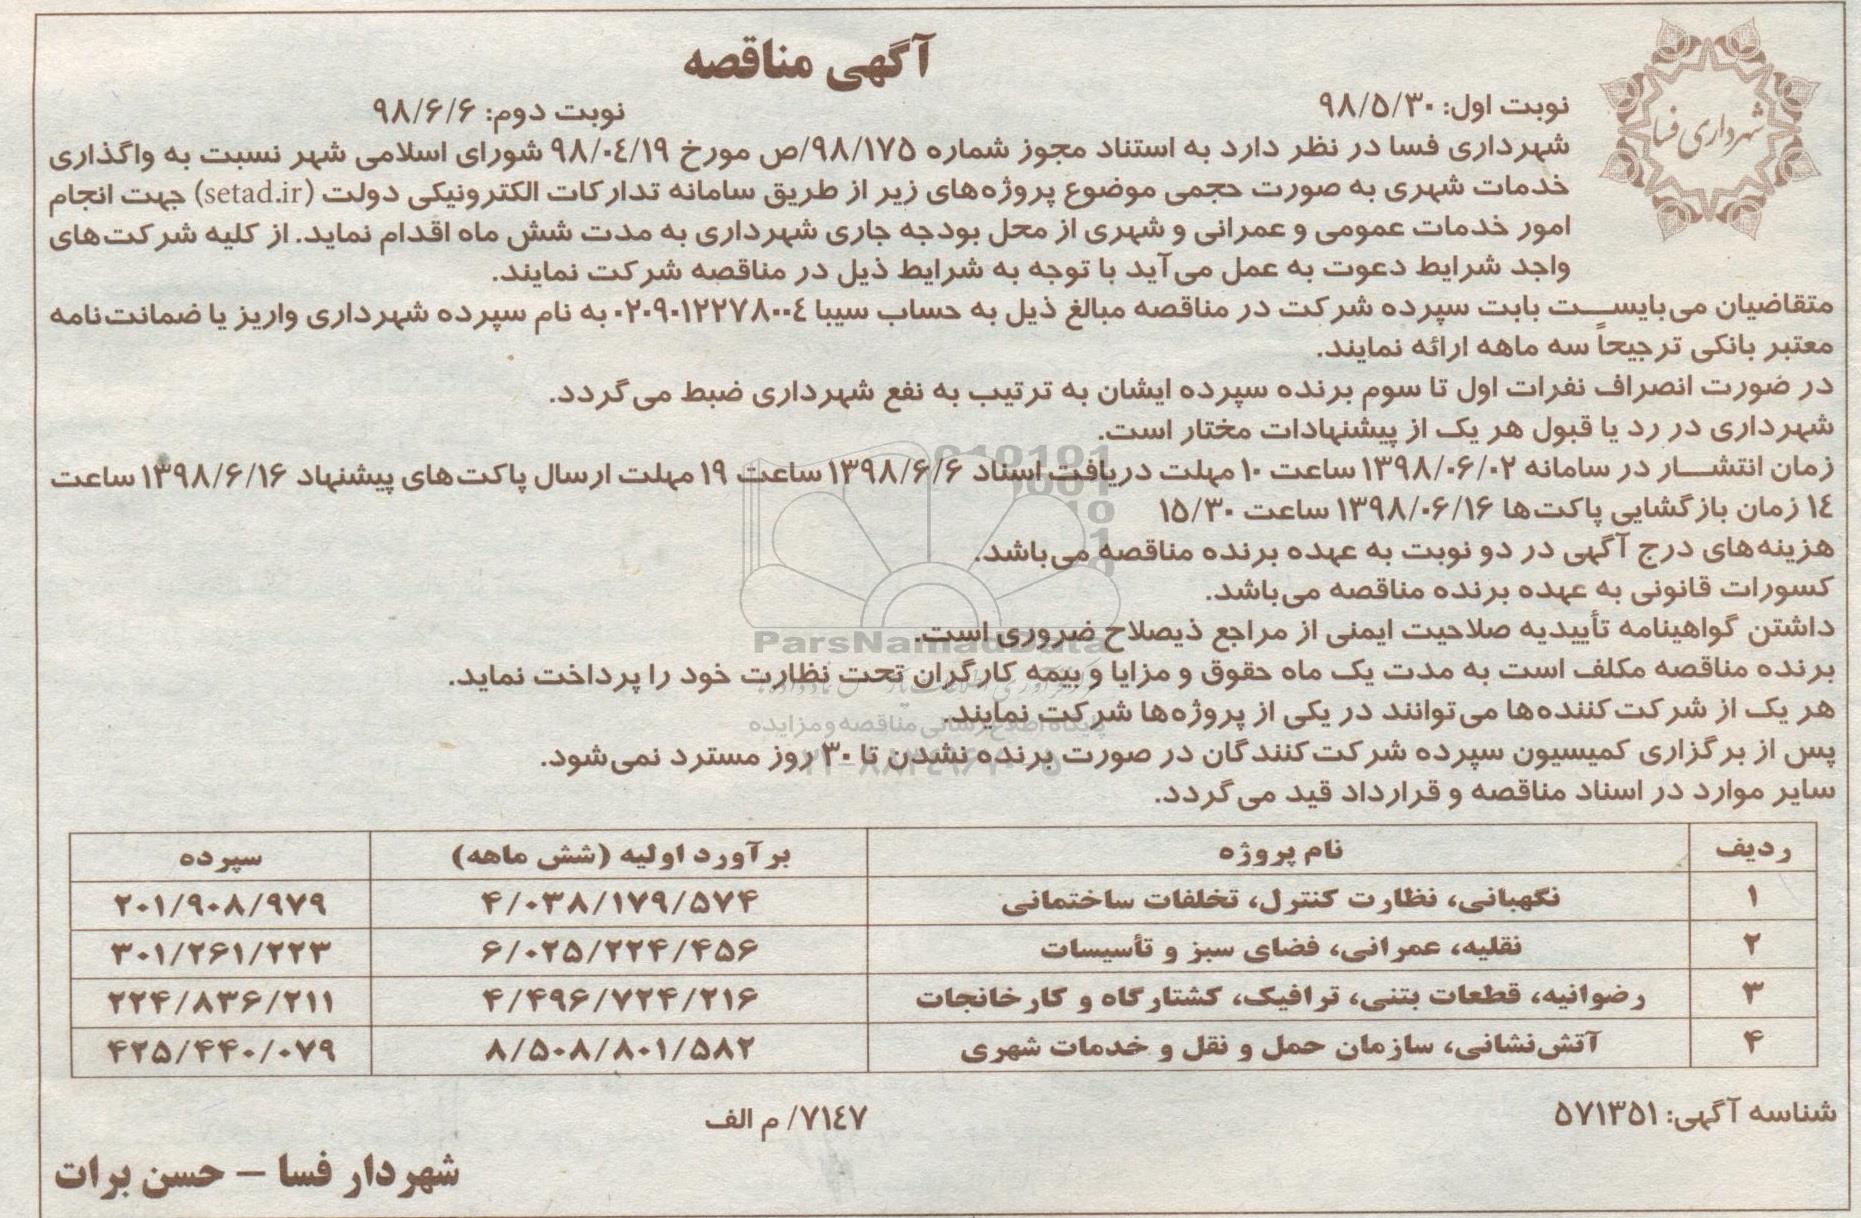 آگهی مناقصه
شهرداری فسا
نوبت اول: ۹۸/۵/۳۰ نوبت دوم: ۹۸/۶/۶
شهرداری فسا در نظر دارد به استناد مجوز شماره ۹۸/۱۷۵/ص مورخ ۹۸/۰٤/۱۹ شورای اسلامی شهر نسبت به واگذاری
خدمات شهری به صورت حجمی موضوع پروژه‌های زیر از طریق سامانه تدارکات الکترونیکی دولت (setad.ir) جهت انجام
امور خدمات عمومی و عمرانی و شهری از محل بودجه جاری شهرداری به مدت شش ماه اقدام نماید. از کلیه شرکت‌های
واجد شرایط دعوت به عمل می‌آید با توجه به شرایط ذیل در مناقصه شرکت نمایند.
متقاضیان می‌بایست بابت سپرده شرکت در مناقصه مبالغ ذیل به حساب سیبا ۰۲۰۹۰۱۲۲۷۸۰۰٤ به نام سپرده شهرداری واریز یا ضمانت‌نامه
معتبر بانکی ترجیحاً سه ماهه ارائه نمایند.
در صورت انصراف نفرات اول تا سوم برنده سپرده ایشان به ترتیب به نفع شهرداری ضبط می‌گردد.
شهرداری در رد یا قبول هر یک از پیشنهادات مختار است.
زمان انتشار در سامانه ۱۳۹۸/۰۶/۰۲ ساعت ۱۰ مهلت دریافت اسناد ۱۳۹۸/۶/۶ ساعت ۱۹ مهلت ارسال پاکت‌های پیشنهاد ۱۳۹۸/۶/۱۶ ساعت
۱٤ زمان بازگشایی پاکت‌ها ۱۳۹۸/۰۶/۱۶ ساعت ۱۵/۳۰
هزینه‌های درج آگهی در دو نوبت به عهده برنده مناقصه می‌باشد.
کسورات قانونی به عهده برنده مناقصه می‌باشد.
داشتن گواهینامه تأییدیه صلاحیت ایمنی از مراجع ذیصلاح ضروری است.
ParsNamadData
برنده مناقصه مکلف است به مدت یک ماه حقوق و مزایا و بیمه کارگران تحت نظارت خود را پرداخت نماید.
هر یک از شرکت‌کننده‌ها می‌توانند در یکی از پروژه‌ها شرکت نمایند.
پایگاه اطلاع رسانی مناقصه و مزایده
پس از برگزاری کمیسیون سپرده شرکت‌کنندگان در صورت برنده نشدن تا ۳۰ روز مسترد نمی‌شود.
سایر موارد در اسناد مناقصه و قرارداد قید می‌گردد.
ردیف نام پروژه برآورد اولیه (شش ماهه) سپرده
۱ نگهبانی، نظارت کنترل، تخلفات ساختمانی ۴/۰۳۸/۱۷۹/۵۷۴ ۲۰۱/۹۰۸/۹۷۹
۲ نقلیه، عمرانی، فضای سبز و تأسیسات ۶/۰۲۵/۲۲۴/۴۵۶ ۳۰۱/۲۶۱/۲۲۳
۳ رضوانیه، قطعات بتنی، ترافیک، کشتارگاه و کارخانجات ۴/۴۹۶/۷۲۴/۲۱۶ ۲۲۴/۸۳۶/۲۱۱
۴ آتش‌نشانی، سازمان حمل و نقل و خدمات شهری ۸/۵۰۸/۸۰۱/۵۸۲ ۴۲۵/۴۴۰/۰۷۹
شناسه آگهی: ۵۷۱۳۵۱ ۷۱٤۷/ م الف
شهردار فسا – حسن برات